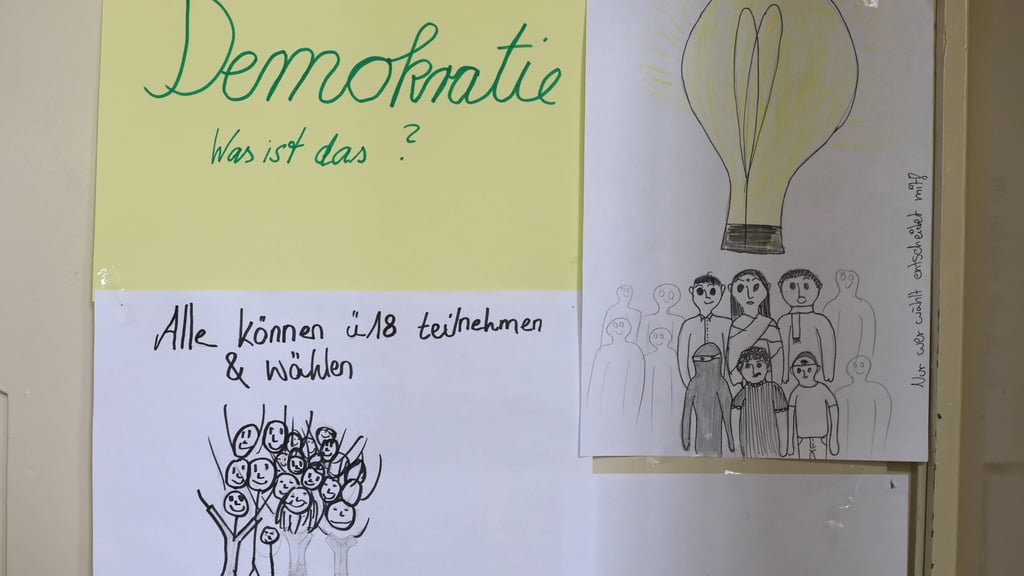 Demokratie
Was ist das ?
Alle können ü18 teilnehmen
& wählen
Nur wer wählt entscheidet mit!